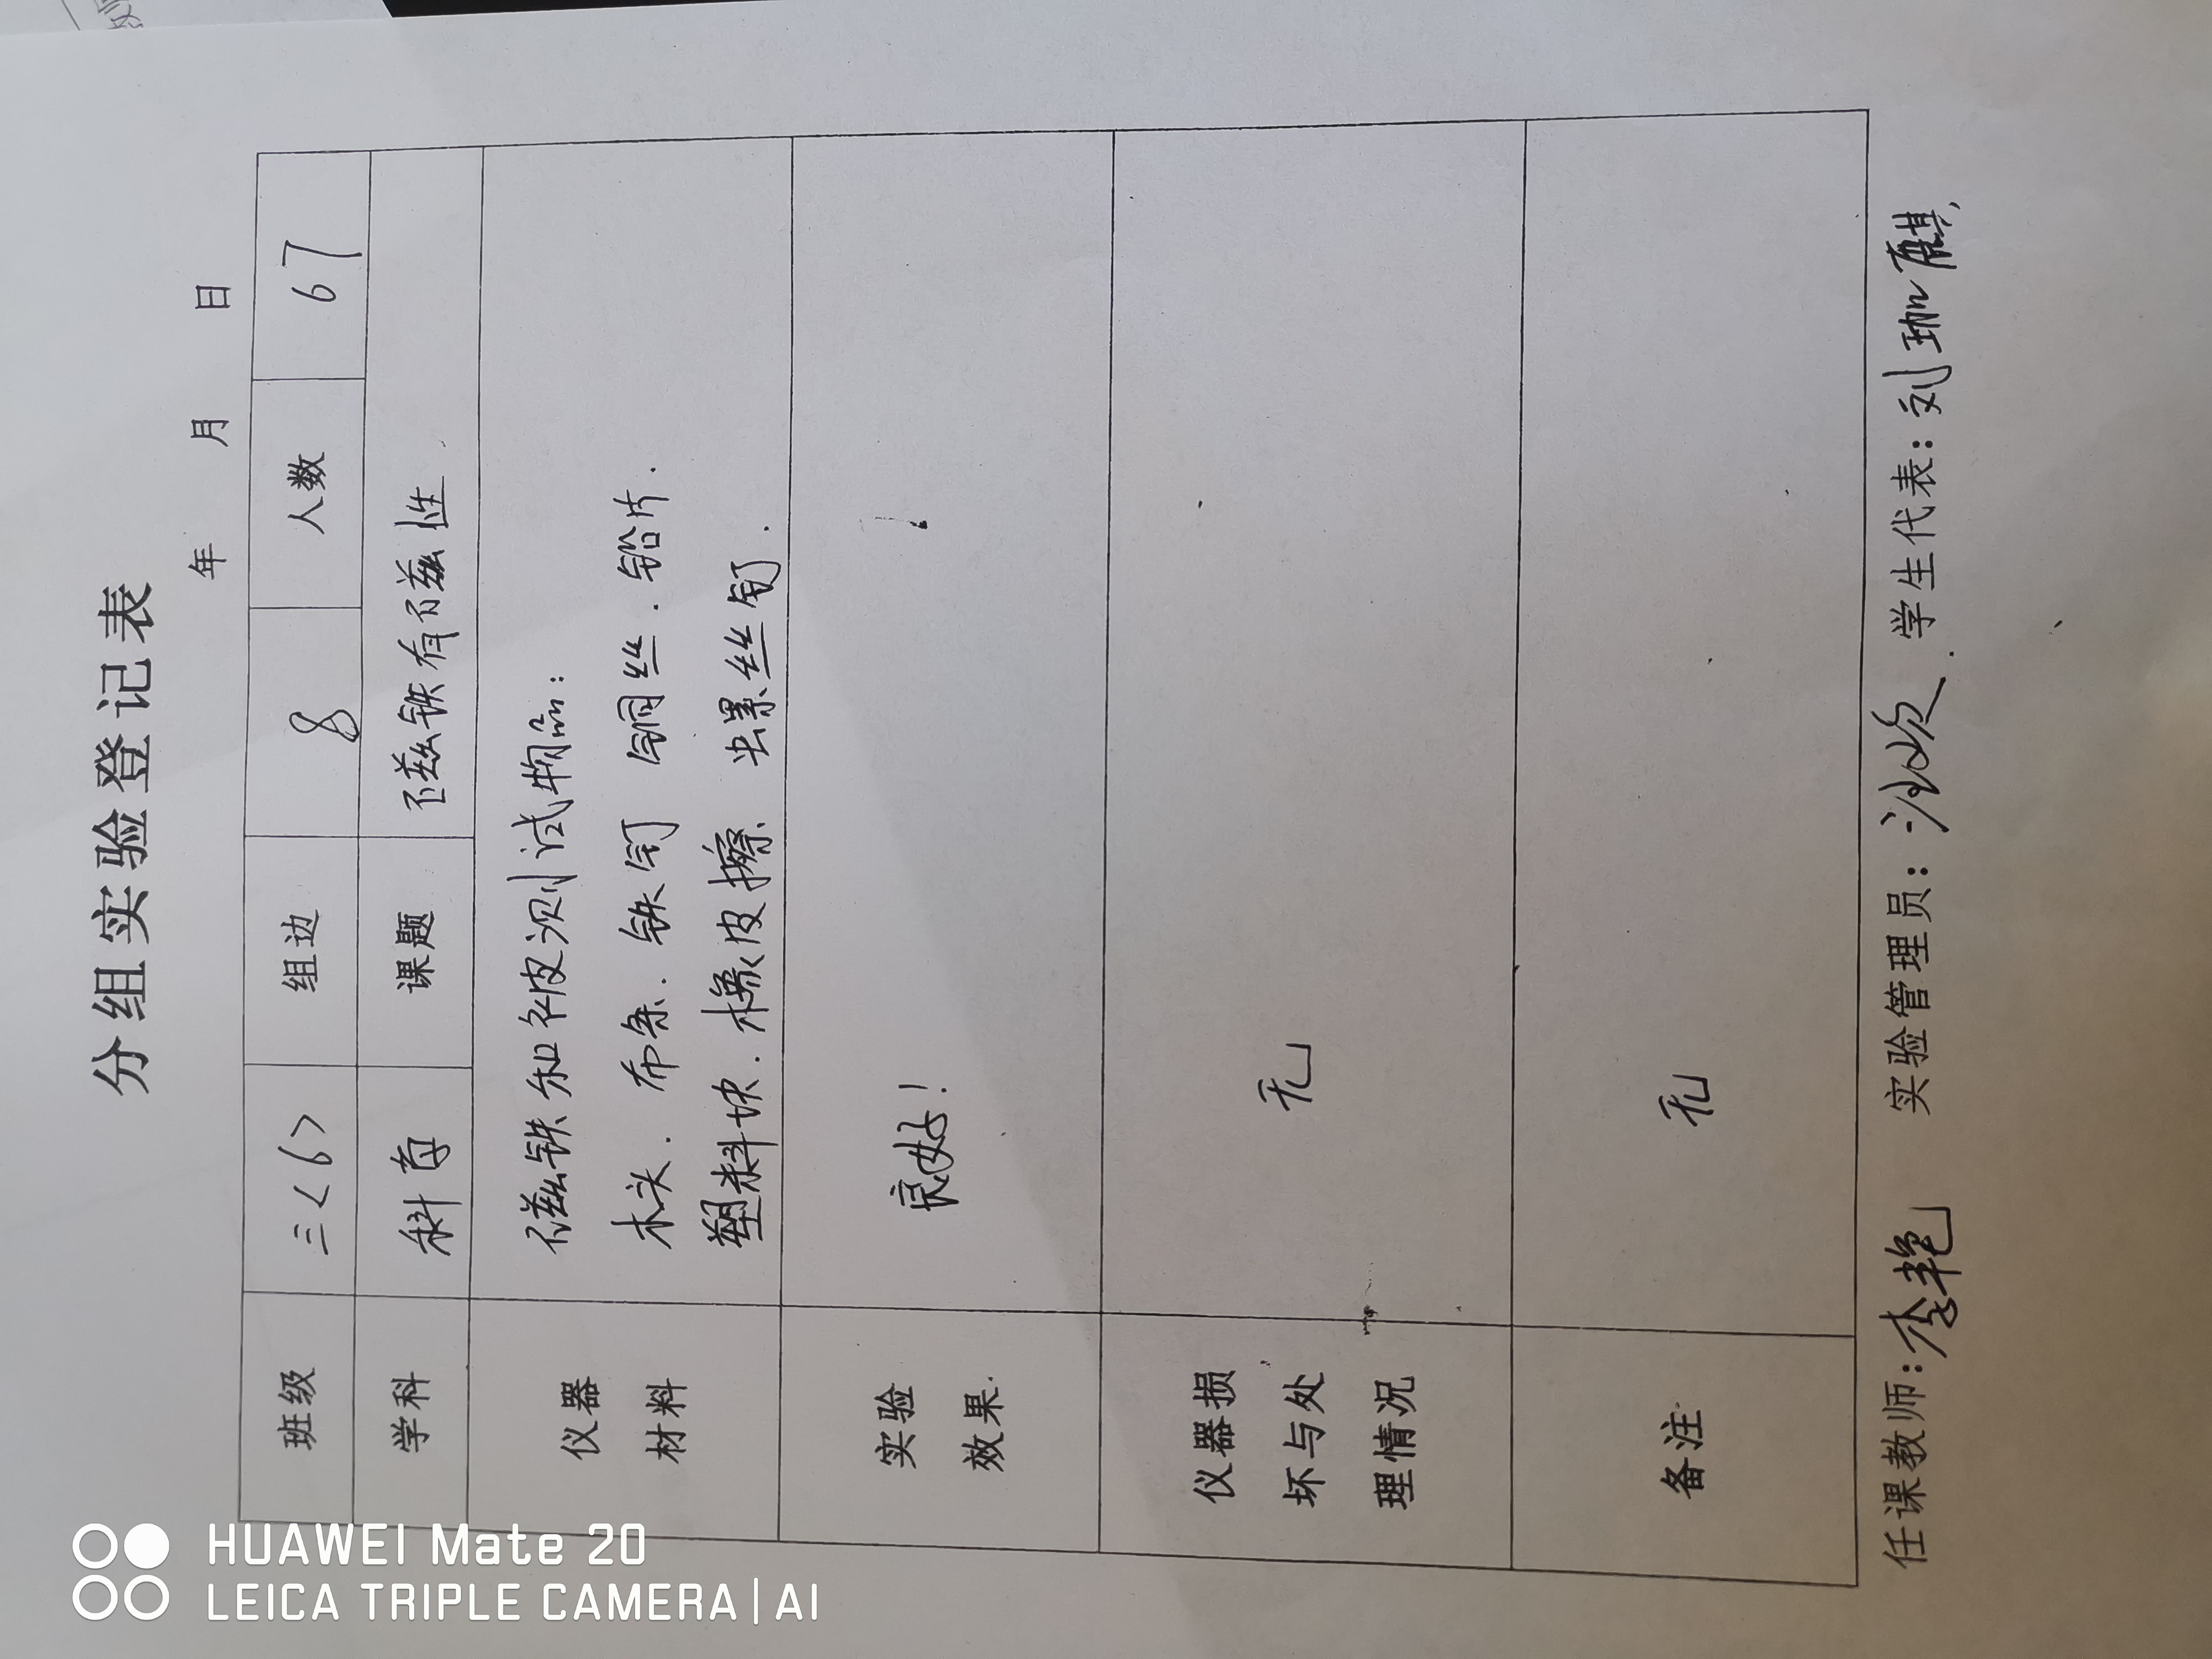 分组实验登记表
年 月 日
班级 三<6> 组边 8 人数 67
学科 科学 课题 磁铁有磁性
仪器
材料
磁铁和被测试物品:
木头. 布条. 铁钉 铜丝. 铅片.
塑料块. 橡皮擦 螺丝钉.
实验
效果.
良好!
仪器损
坏与处
理情况
无
备注
无
任课教师: 李艳 实验管理员: 学生代表: 刘珈麒
HUAWEI Mate 20
LEICA TRIPLE CAMERA | AI